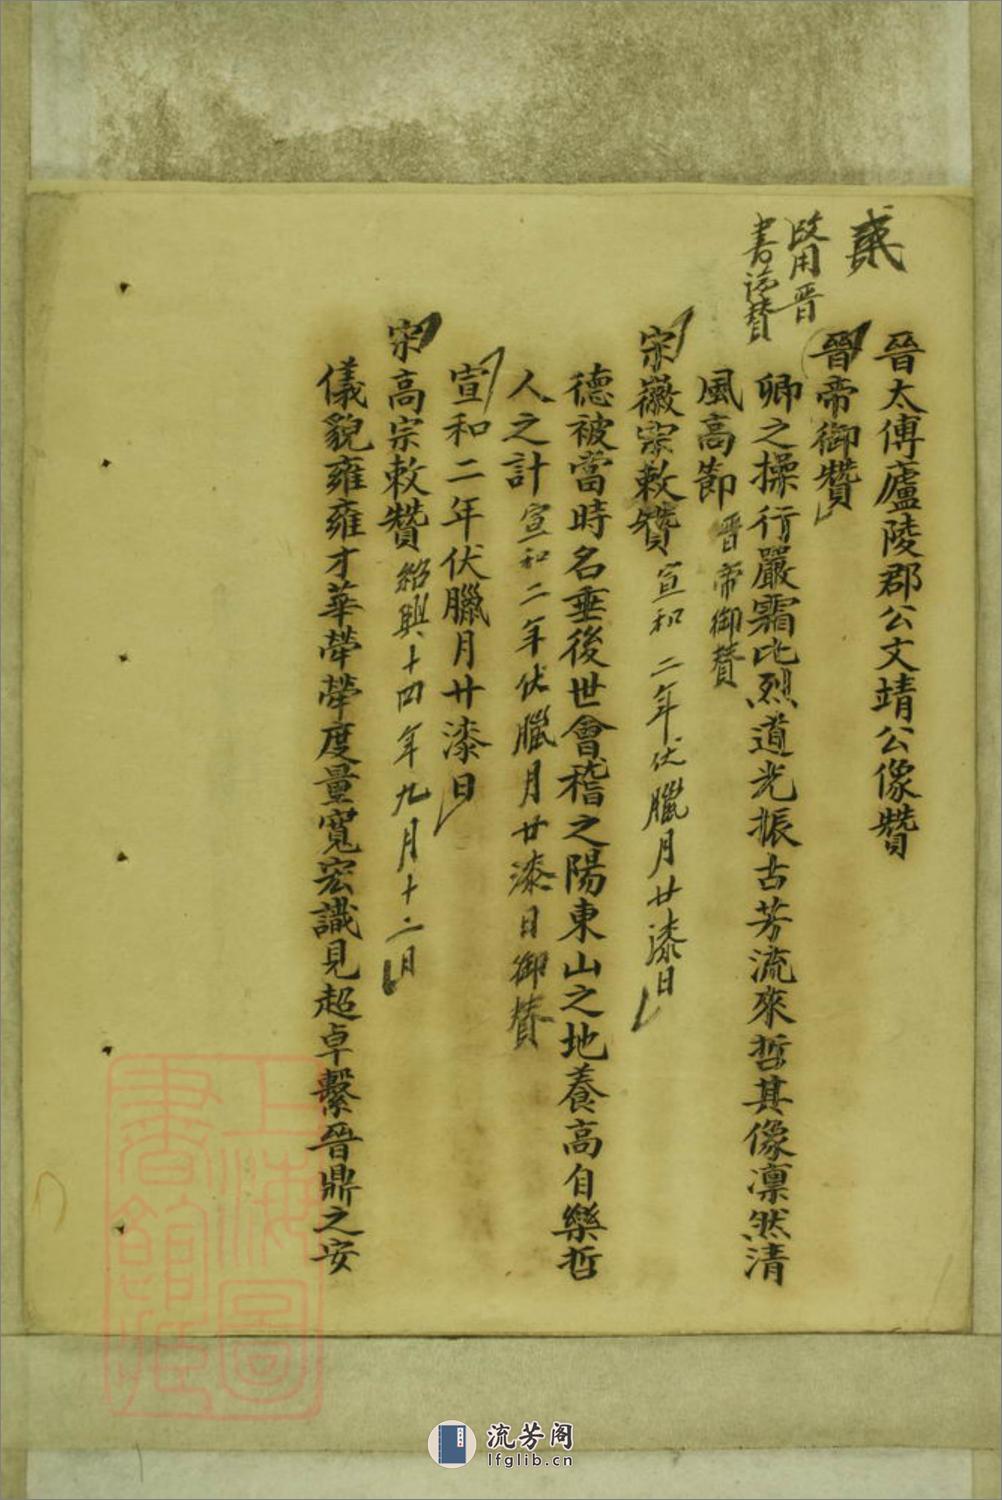 貳
改用晋
書法贊
晉太傅廬陵郡公文靖公像贊
晉帝御贊
卿之操行嚴霜比烈道光振古芳流來哲其像凛然清
風高節晋帝御賛
宋徽宗敕贊宣和二年伏臘月廿漆日
德被當時名垂後世會稽之陽東山之地養高自樂哲
人之計宣和二年伏臘月廿漆日御賛
宣和二年伏臘月廿漆日
宋高宗敕贊紹興十四年九月十二月
儀貌雍雍才華犖犖度量寬宏識見超卓繫晉鼎之安
上海圖書館藏
流芳阁
lfglib.cn